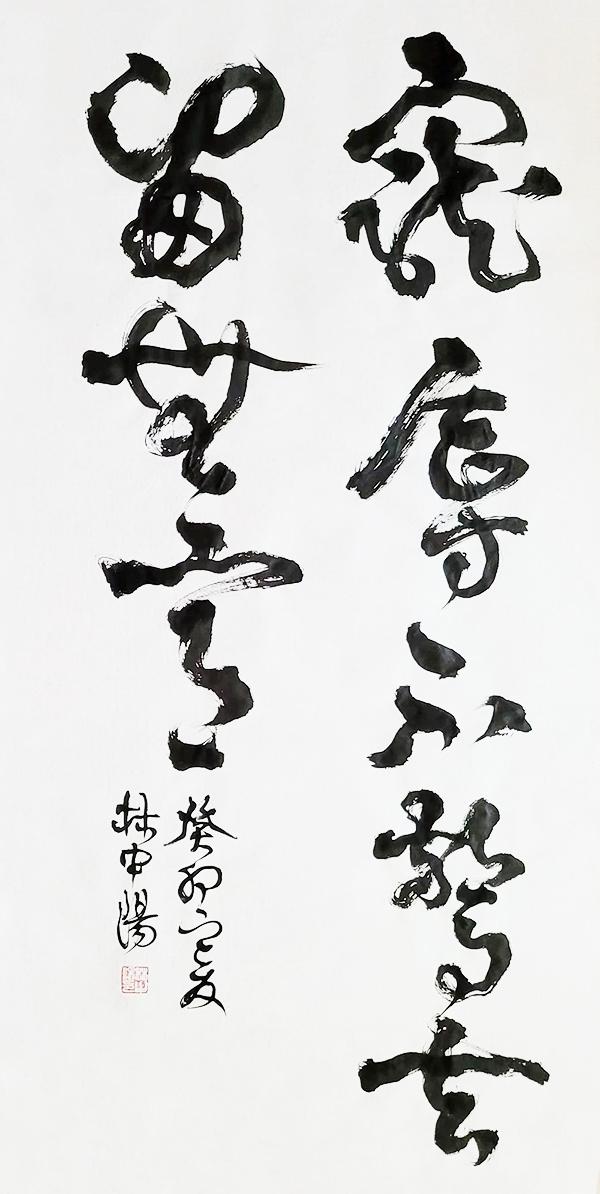 寵辱不驚去
留無意
癸卯
林中陽